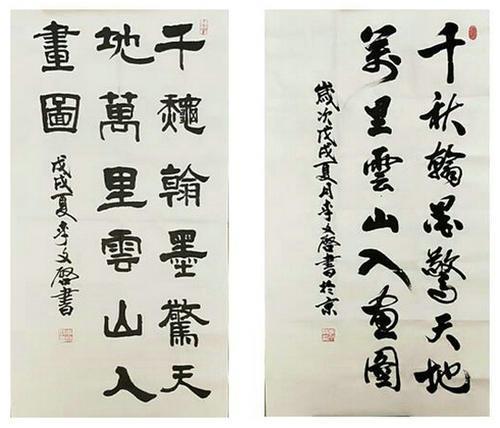 千龝翰墨驚天
地萬里雲山入
畫圖
戊戌夏李文啓書
千秋翰墨驚天地
萬里雲山入画圖
歲次戊戌夏月李文啓書於京